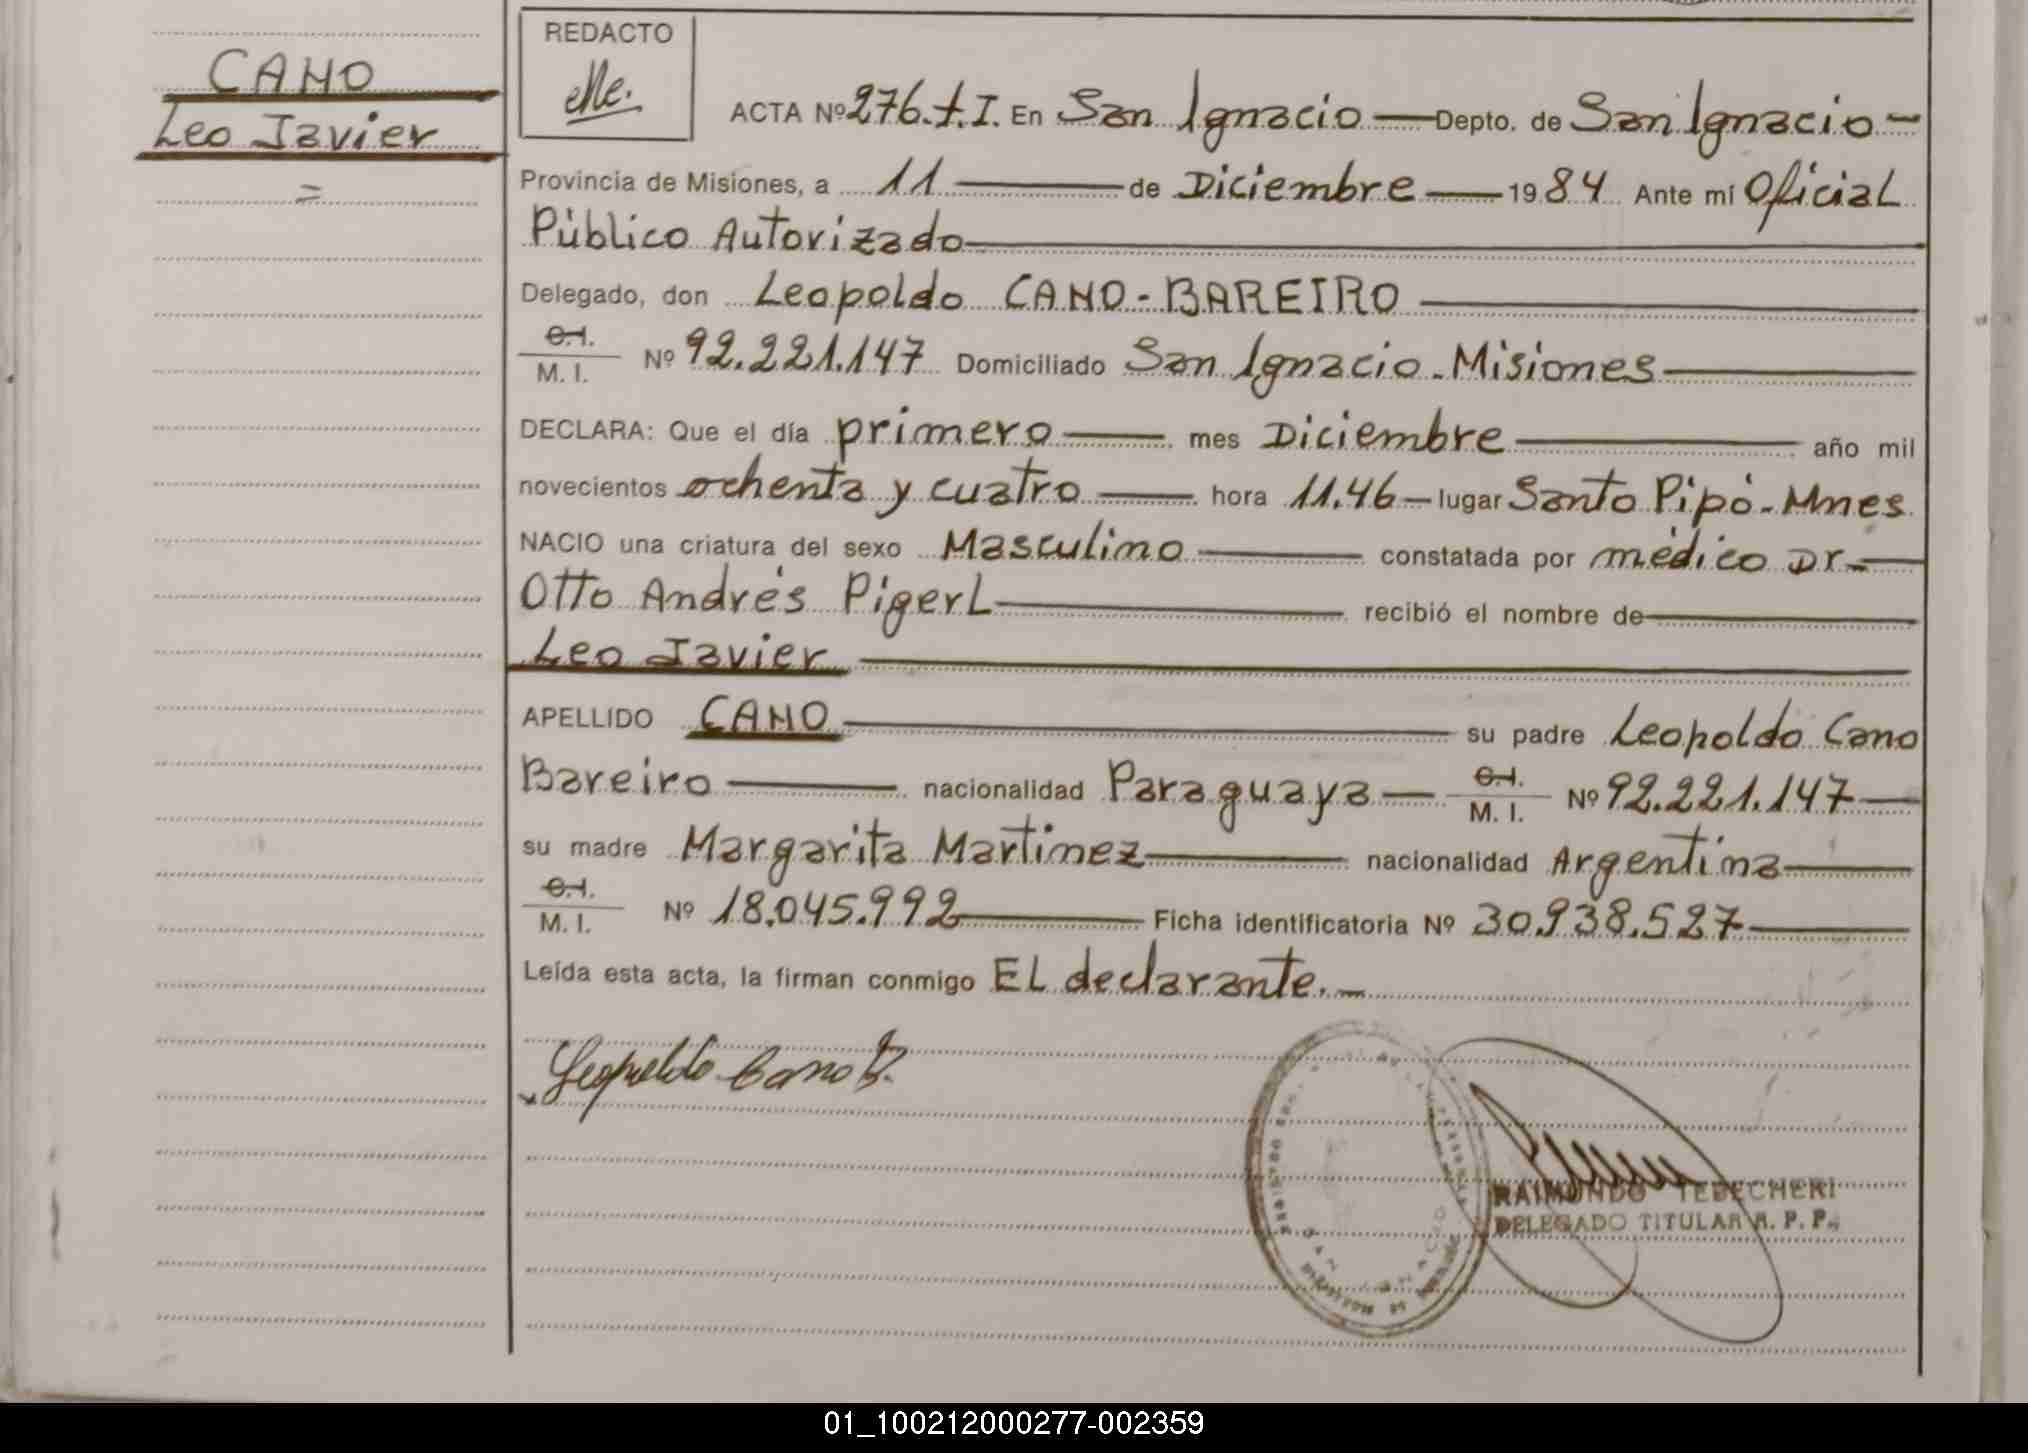 CANO
Leo Javier
=
REDACTO
ACTA Nº 276.t.I. En San Ignacio — Depto. de San Ignacio -
Provincia de Misiones, a 11 — de Diciembre — 1984 Ante mí Oficial
Público Autorizado
Delegado, don Leopoldo CANO-BAREIRO
C.I.
M. I. Nº 92.221.147 Domiciliado San Ignacio - Misiones
DECLARA: Que el día primero — mes Diciembre — año mil
novecientos ochenta y cuatro — hora 11.46 — lugar Santo Pipó - Mnes.
NACIO una criatura del sexo Masculino — constatada por médico Dr.
Otto Andrés Pigerl — recibió el nombre de
Leo Javier
APELLIDO CANO — su padre Leopoldo Cano
Bareiro — nacionalidad Paraguaya — C.I.
M. I. Nº 92.221.147
su madre Margarita Martinez — nacionalidad Argentina
C.I.
M. I. Nº 18.045.992 — Ficha identificatoria Nº 30.938.527
Leída esta acta, la firman conmigo El declarante.-
Leopoldo Cano B.
RAIMUNDO TEBECHERI
DELEGADO TITULAR R. P. P.
01_100212000277-002359